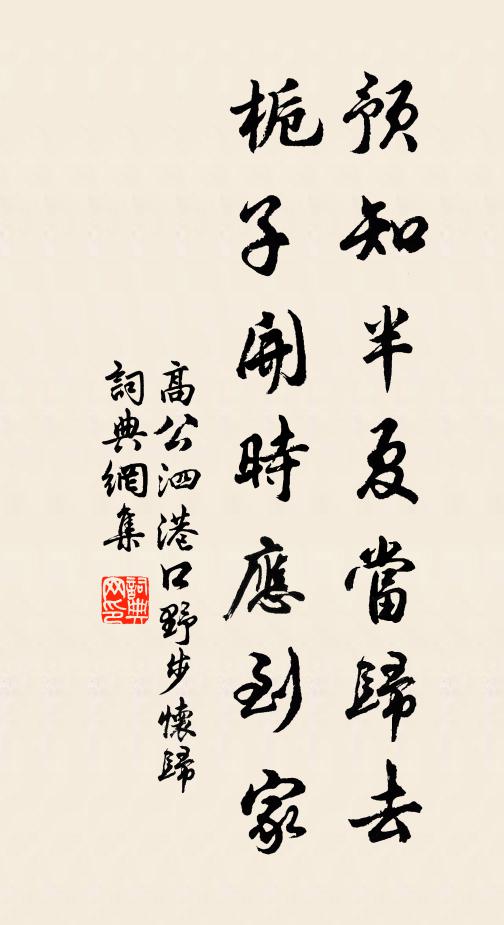 預知半夏當歸去
梔子開時應到家
高公泗港口野步懷歸
詞典網集
詞典
网印